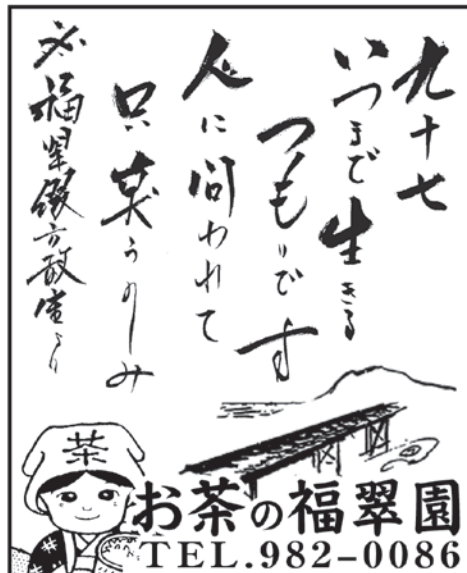 九十七
いつまで生きる
つもりです
人に問われて
只笑うのみ
福翠
より
茶
お茶の福翠園
TEL.982-0086